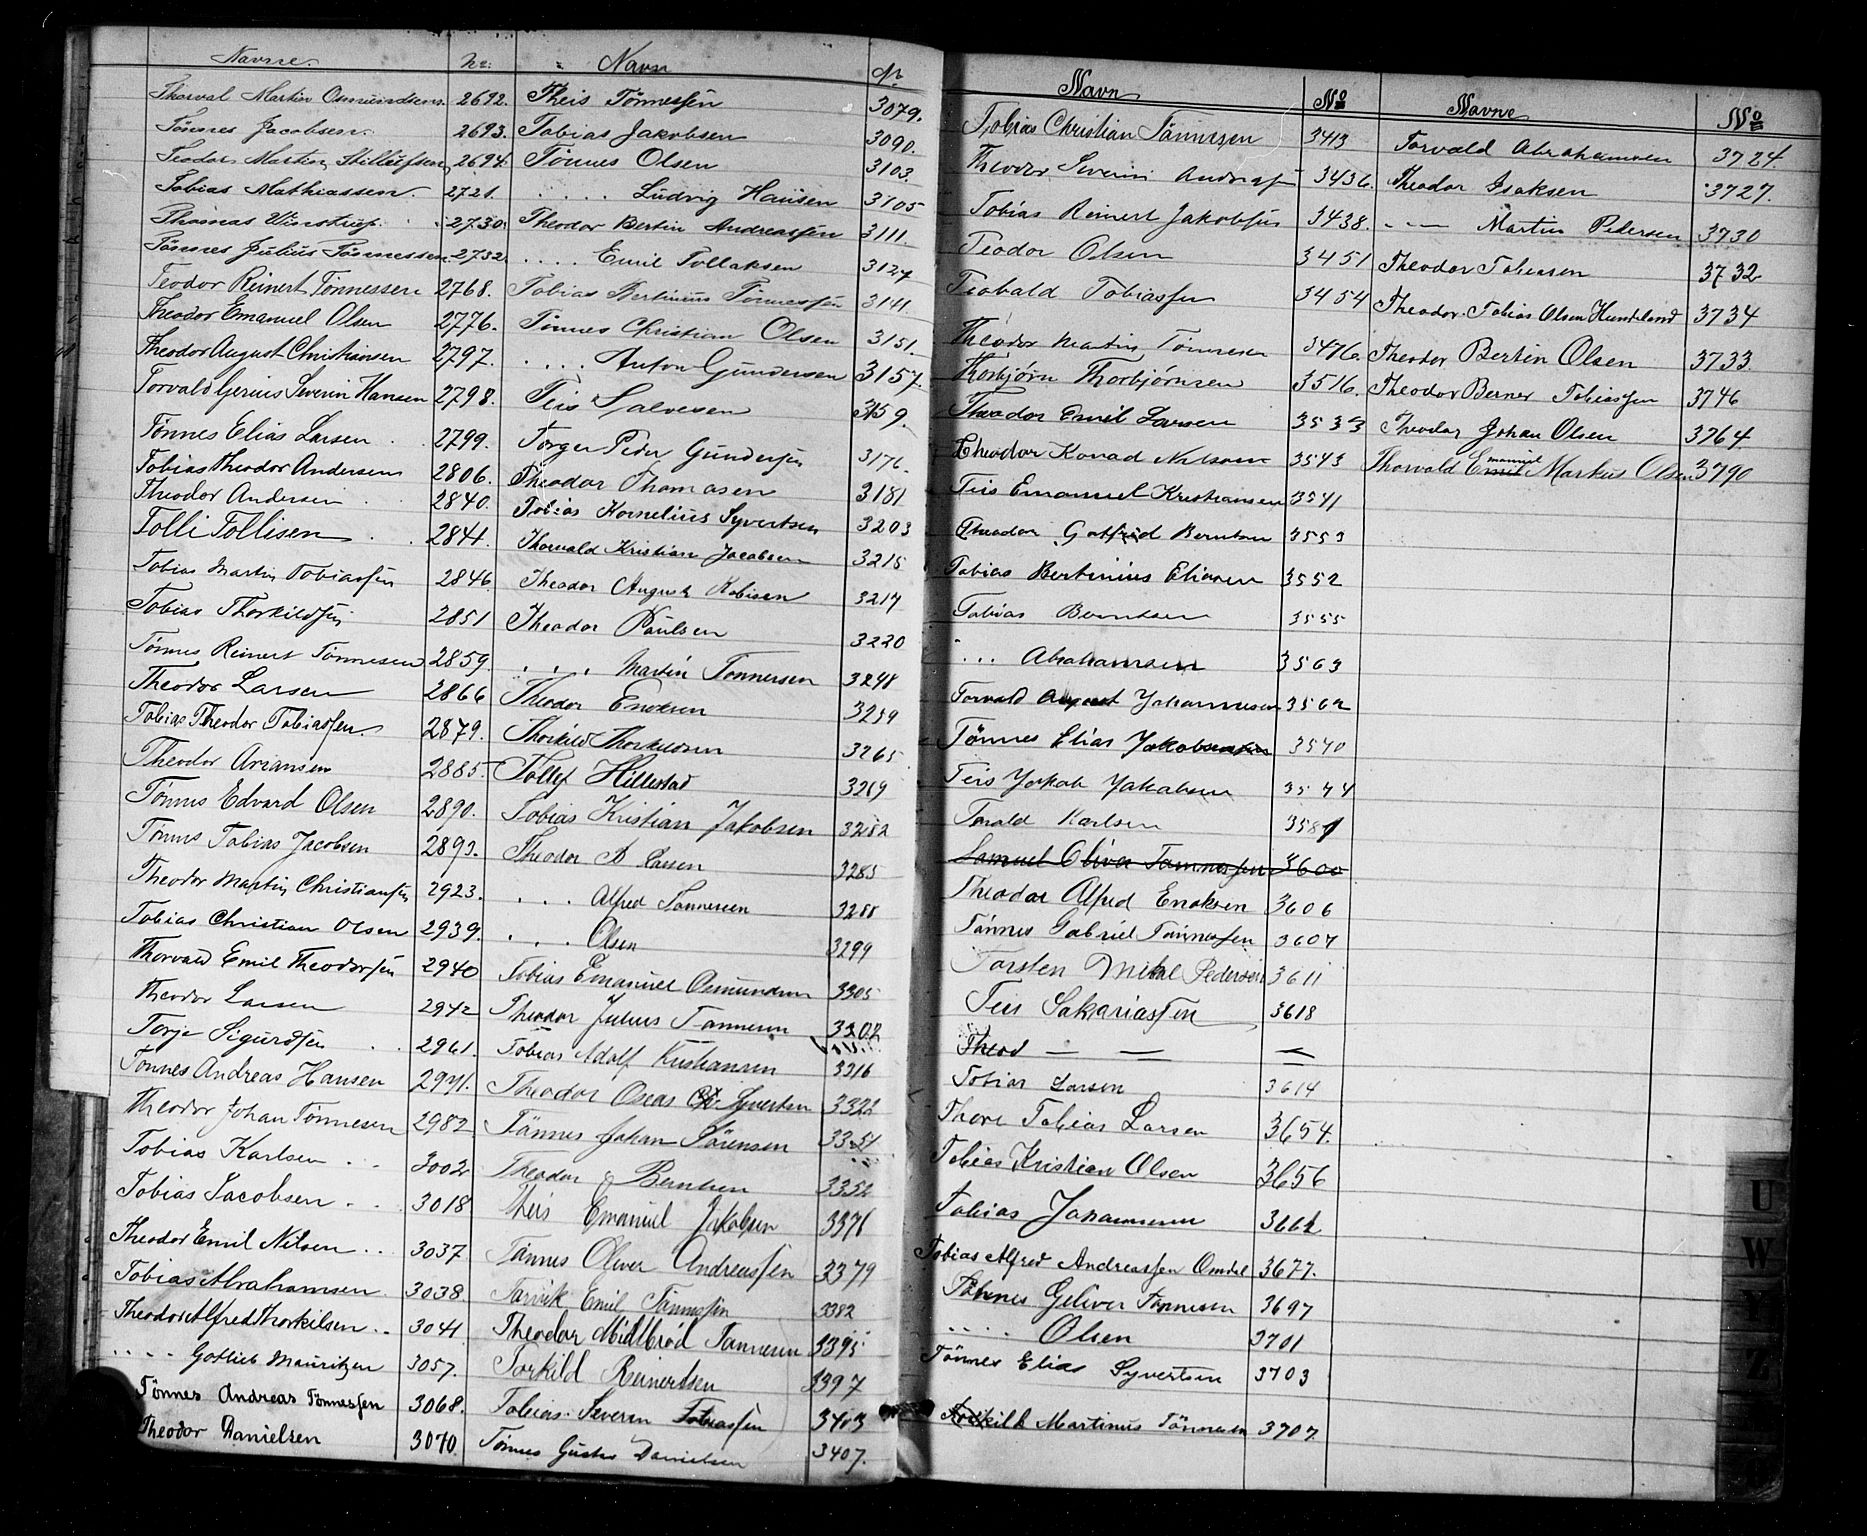 Navne. Nr.
Thorval Martin Osmundsen. 2692.
Tönnes Jacobsen. 2693.
Teodor Martin 2694
Tobias Mathiassen. 2721.
Thomas Winstrup. 2730.
Tönnes Julius Tönnessen 2732.
Teodor Reinert Tönnessen 2768.
Theodor Emanuel Olsen 2776.
Theodor August Christiansen 2797.
Torvald Gerius Severin Hansen 2798.
Tönnes Elias Larsen . . 2799.
Tobias Theodor Andersen 2806.
Theodor Andersen . 2840.
Tolli Tollisen . . 2841.
Tobias Martin Tobiassen 2846.
Tobias Thorkildsen 2851
Tönnes Reinert Tönnesen 2859.
Theodor Larsen 2866
Tobias Theodor Tobiassen. 2879.
Theodor Ariansen 2885.
Tönnes Edvard Olsen 2890.
Tönnes Tobias Jacobsen 2893.
Theodor Martin Christiansen 2923.
Tobias Christian Olsen 2939.
Thorvald Emil Theodorsen 2940
Theodor Larsen 2942
Terje Sigurdsen . . 2961.
Tönnes Andreas Hansen 2971.
Theodor Johan Tönnesen 2982
Tobias Karlsen . . . 3002
Tobias Jacobsen . . . 3018
Theodor Emil Nilsen . . 3037
Tobias Abrahamsen. 3038.
Theodor Alfred Thorkilsen . . 3041
. . . . Gotlieb Mauritzen 3057.
Tönnes Andreas Tönnessen 3068.
Theodor Danielsen 3070.
Navn Nr
Theis Tönnessen 3079.
Tobias Jakobsen 3090.
Tönnes Olsen 3103.
. . . . Ludvig Hansen 3105
Theodor Bertin Andreassen 3111.
. . . . Emil Tollaksen 3127
Tobias Bertinius Tönnessen 3141.
Tönnes Christian Olsen 3151.
. . . . Anton Gundersen 3157.
Teis Salvesen 3159.
Torger Peder Gundersen 3176.
Theodor Thomasen 3181
Tobias Kornelius Syvertsen 3203
Thorvald Kristian Jacobsen 3215
Theodor August Robisen 3217
Theodor Paulsen 3220
. . . Martin Tönnersen 3248
Theodor Enoksen 3259
Thorkild Thorkildsen 3265
Tollef Hillestad 3269
Tobias Kristian Jakobsen 3282
Theodor A Larsen 3285
. . . Alfred Tönnesen 3288
. . . Olsen 3299
Tobias Emanuel Osmundsen 3305
Theodor Julius Tönnesen 3308
Tobias Adolf Kristiansen 3316
Theodor Oscar Syvertsen 3322
Tönnes Johan Sörensen 3351
Theodor Berntsen 3352
Theis Emanuel Jakobsen 3376
Tönnes Oliver Andreassen 3379
Tarvik Emil Tönnessen 3382
Theodor Midtbröd Tönnesen 3395
Torkild Reinertsen 3397
Tobias Severin Tobiassen 3403
Tönnes Gustav Danielsen 3407.
Navn No
Tobias Christian Tönnesen 3413
Theodor Severin Andreassen 3436.
Tobias Reinert Jakobsen 3438.
Teodor Olsen 3451
Teobald Tobiassen 3454
Theodor Martin Tönnesen 3476.
Thorbjørn Thorbjørnsen 3516.
Theodor Emil Larsen 3533
Theodor Konrad Nilsen 3543
Teis Emanuel Kristiansen 3541
Theodor Gotfrid Berntsen 3553
Tobias Bertinius Eliasen 3552
Tobias Berntsen 3555
. . . Abrahamsen 3563
Torvald August Johannesen 3562
Tönnes Elias Jakobsen 3540
Teis Jakob Jakobsen 3544
Torald Karlsen 3581
Samuel Oliver Tönnessen 3600
Theodor Alfred Enoksen 3606
Tönnes Gabriel Tönnessen 3607
Torsten Mikal Pedersen 3611
Teis Sakariassen 3618
Theod — — —
Tobias Larsen 3614
Thore Tobias Larsen 3654.
Tobias Kristian Olsen 3656
Tobias Johannesen 3662
Tobias Alfred Andreassen Omdal 3677.
Tönnes Geliver Tönnesen 3697
. . . . Olsen 3701
Tönnes Elias Syvertsen 3703
Torkild Martinus Tönnesen 3707.
Navne No
Torvald Abrahamsen 3724
Theodor Isaksen 3727.
— — Martin Pedersen 3730
Theodor Tobiasen 3732
Theodor Tobias Olsen Hundeland 3734
Theodor Bertin Olsen 3733.
Theodor Berner Tobiassen 3746
Theodor Johan Olsen 3764.
Thorvald Emanuel Markus Olsen 3790
U
W
Z